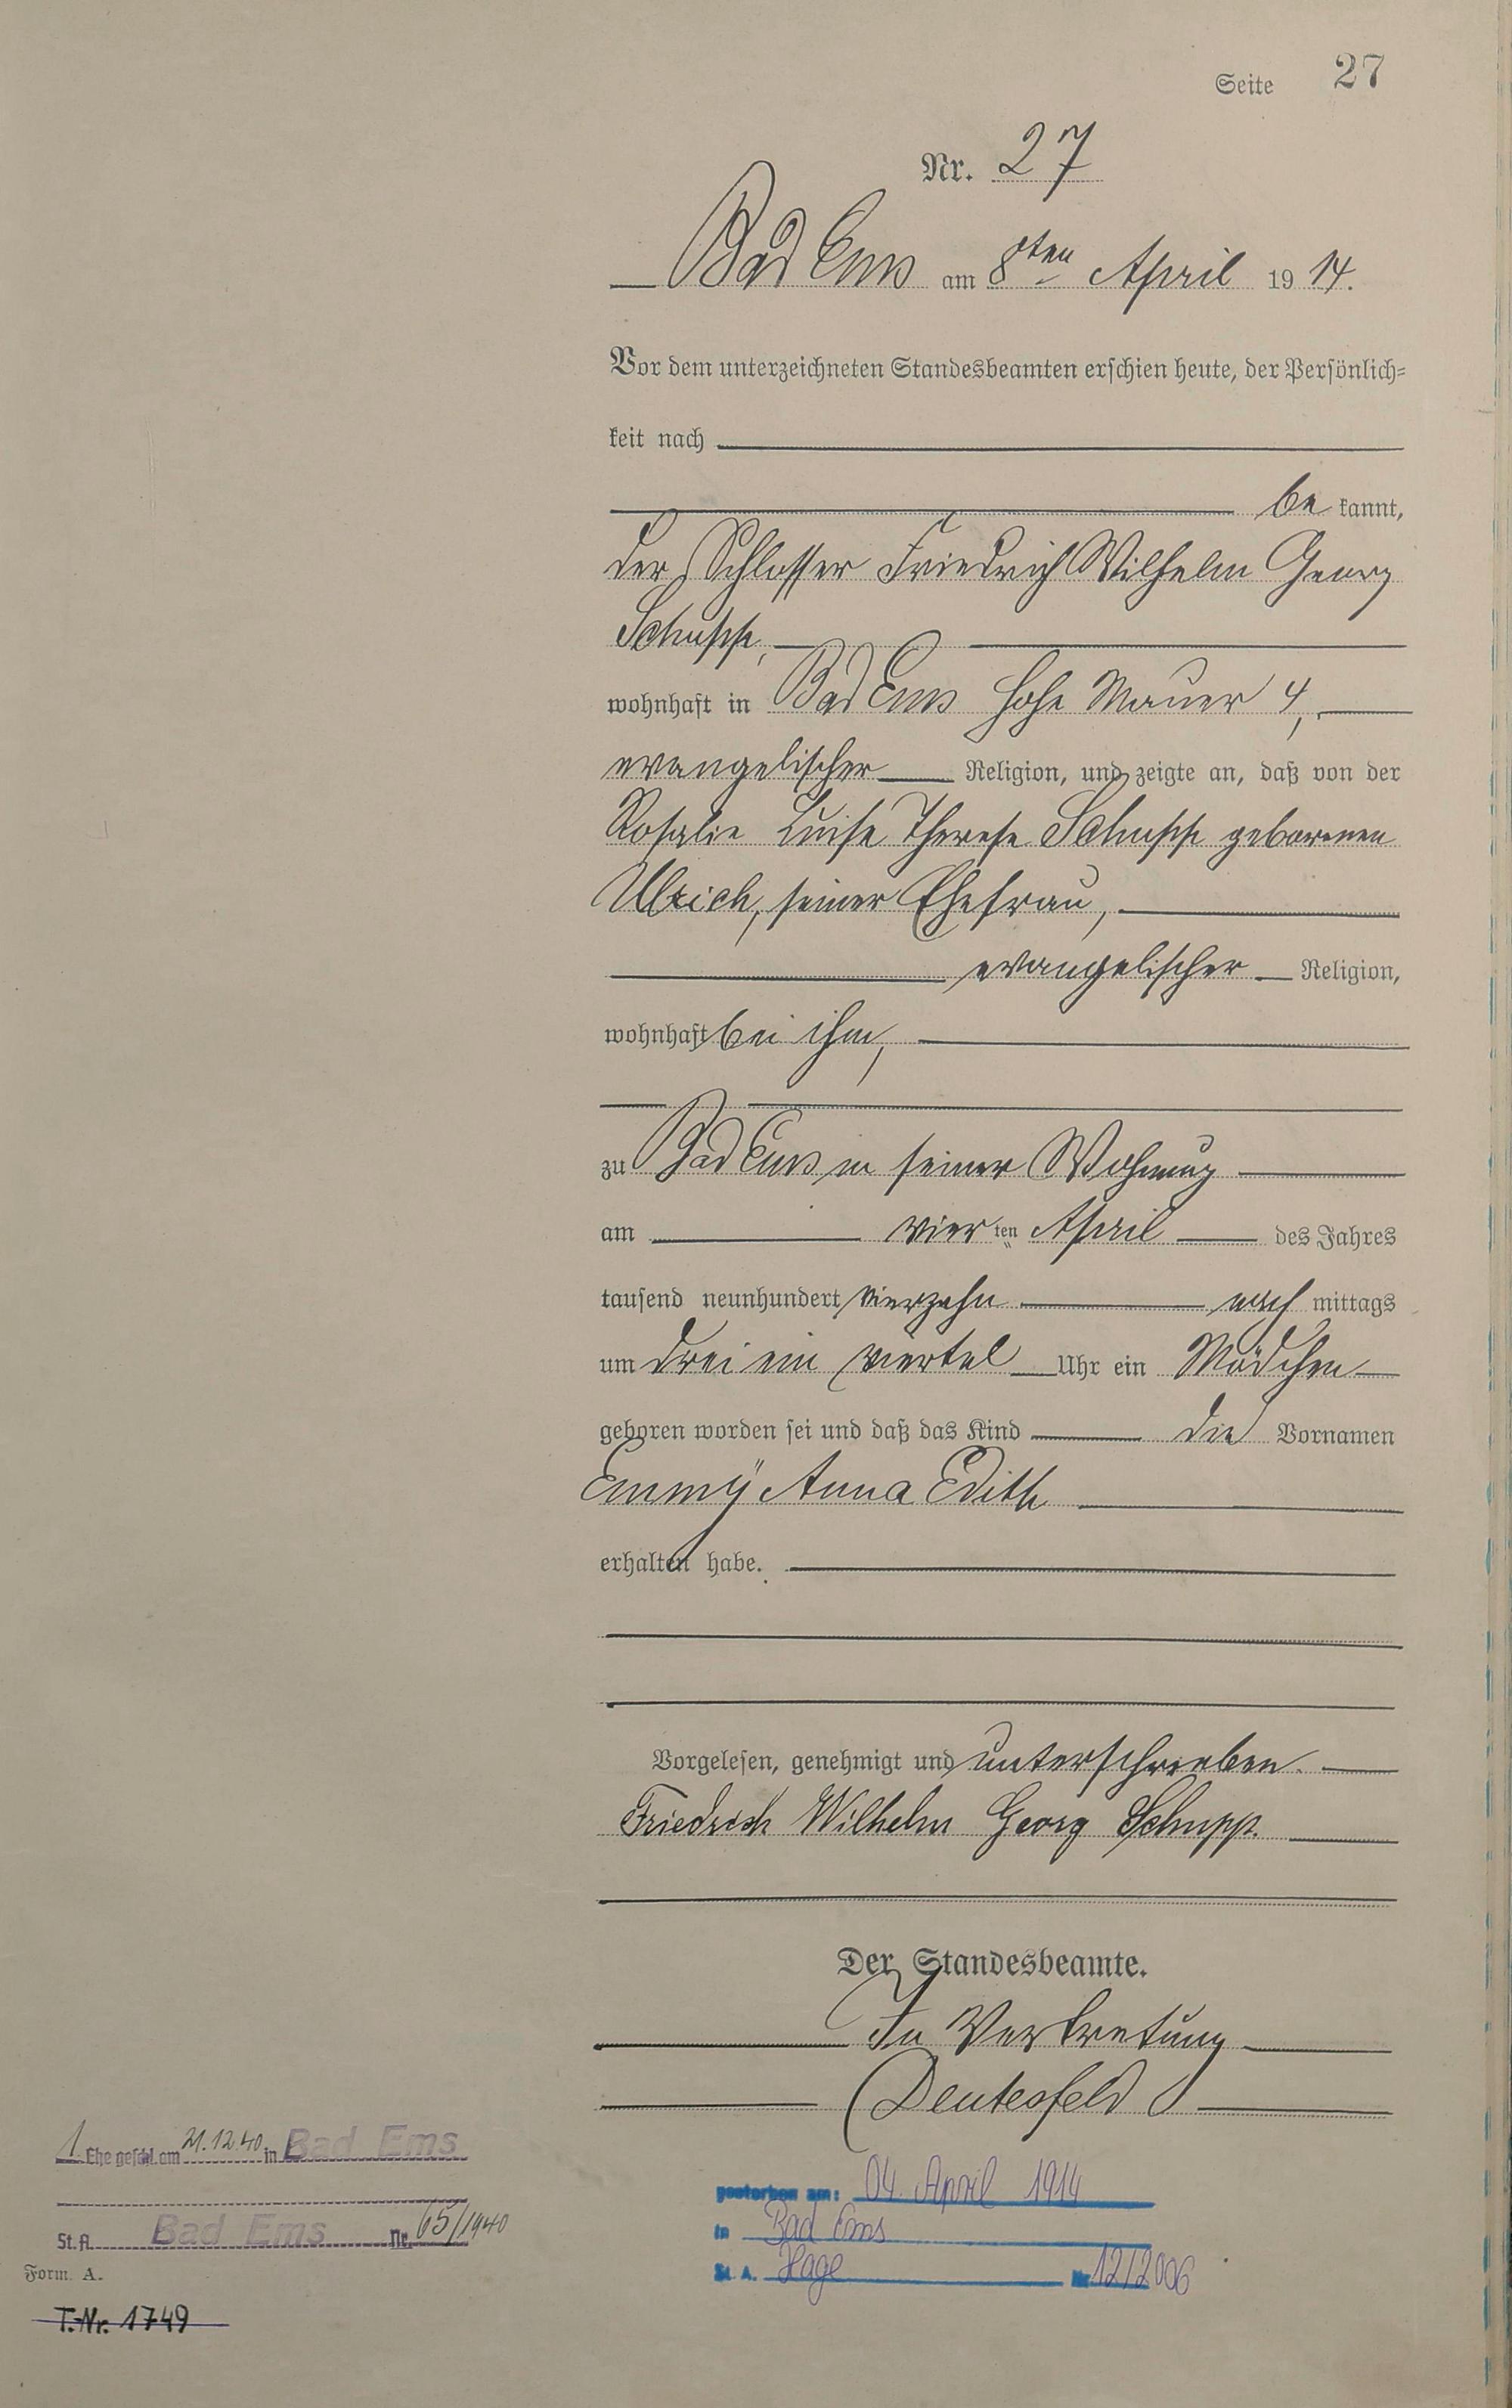 Seite 27
Nr. 27
Bad Ems am 8ten April 1914.
Vor dem unterzeichneten Standesbeamten erschien heute, der Persönlich=
keit nach
be kannt,
der Schlosser Friedrich Wilhelm Georg
Schupp,
wohnhaft in Bad Ems Hohe Mauer 4,
evangelischer Religion, und zeigte an, daß von der
Rosalie Luise Therese Schupp geborenen
Ulrich, seiner Ehefrau,
evangelischer Religion,
wohnhaft bei ihm,
zu Bad Ems in seiner Wohnung
am vier ten April des Jahres
tausend neunhundert vierzehn nach mittags
um drei ein viertel Uhr ein Mädchen
geboren worden sei und daß das Kind die Vornamen
Emmÿ Anna Edith
erhalten habe.
Vorgelesen, genehmigt und unterschrieben.
Friedrich Wilhelm Georg Schupp.
Der Standesbeamte.
In Vertretung
Deutesfeld
1. Ehe geschl. am 21.12.40 in Bad Ems
St.A. Bad Ems Nr. 65/1940
Form. A.
T.-Nr. 1749
gestorben am: 04. April 1914
in Bad Ems
St. A. Hage Nr. 12/2006